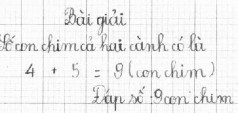 Bài giải
Số con chim cả hai cành có là
4 + 5 = 9 (con chim)
Đáp số : 9 con chim